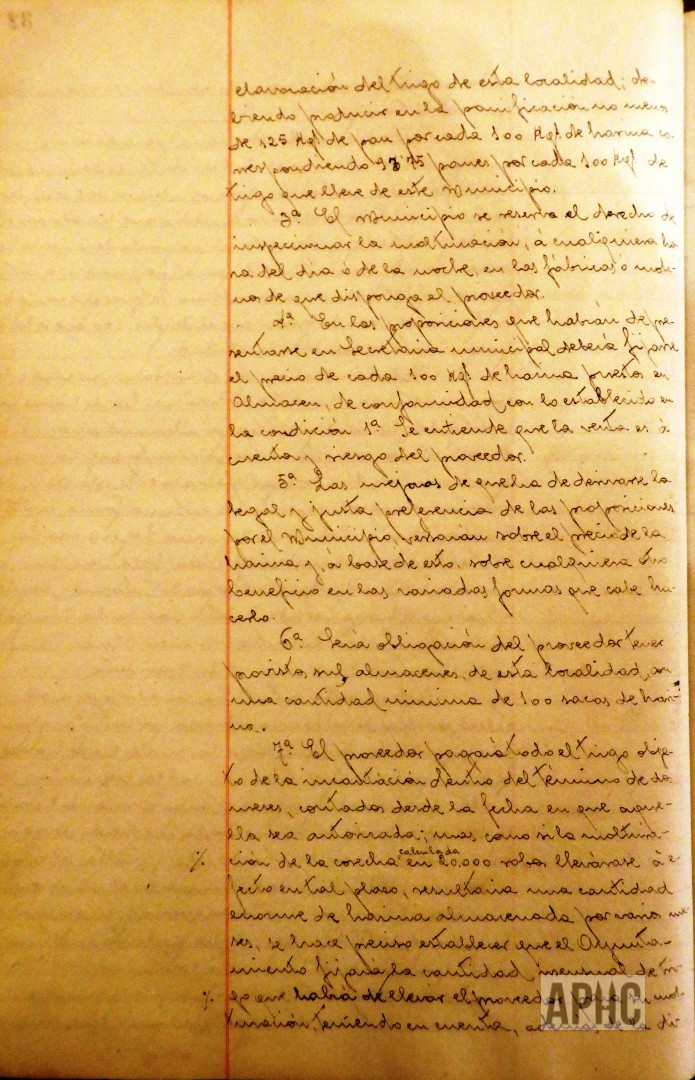 elavoración del trigo de esta localidad; de-
biendo producir en la panificación no menos
de 125 Kgs. de pan por cada 100 Kgs. de harina co-
rrespondiendo 93'75 panes por cada 100 Kgs. de
trigo que lleve de este Municipio.
3ª El Municipio se reserva el derecho de
inspeccionar la molturación, á cualquiera ho
ra del dia ó de la noche, en las fábricas ó moli-
nos de que disponga el proveedor.
4ª En las proposiciones que habrán de pre
sentarse en Secretaria municipal deberá fijarse
el precio de cada 100 Kgs. de harina puestos en
Almacen, de conformidad con lo establecido en
la condición 1ª. Se entiende que la venta es á
cuenta y riesgo del proveedor.
5ª Las mejoras de que ha de derivarse la
legal y justa preferencia de las proposiciones
por el Municipio, versarán sobre el precio de la
harina y, á base de esto, sobre cualquiera otro
beneficio en las variadas formas que cabe ha-
cerlo.
6ª Será obligación del proveedor tener
provistos sus almacenes de esta localidad, con
una cantidad minima de 100 sacos de hari-
na.
7ª El proveedor pagará todo el trigo obje-
to de la incautación dentro del término de dos
meses, contados desde la fecha en que aque-
lla sea autorizada; mas como si la moltura-
calculada
%. ción de la cosecha en 20.000 robos llevárase á e-
fecto en tal plazo, resultaria una cantidad
enorme de harina almacenada por varios me-
ses, se hace preciso establecer que el Ayunta-
miento fijará la cantidad mensual de tri-
%. go que habrá de llevar el proveedor para su mol-
turación, teniendo en cuenta, además de la di-
APHC